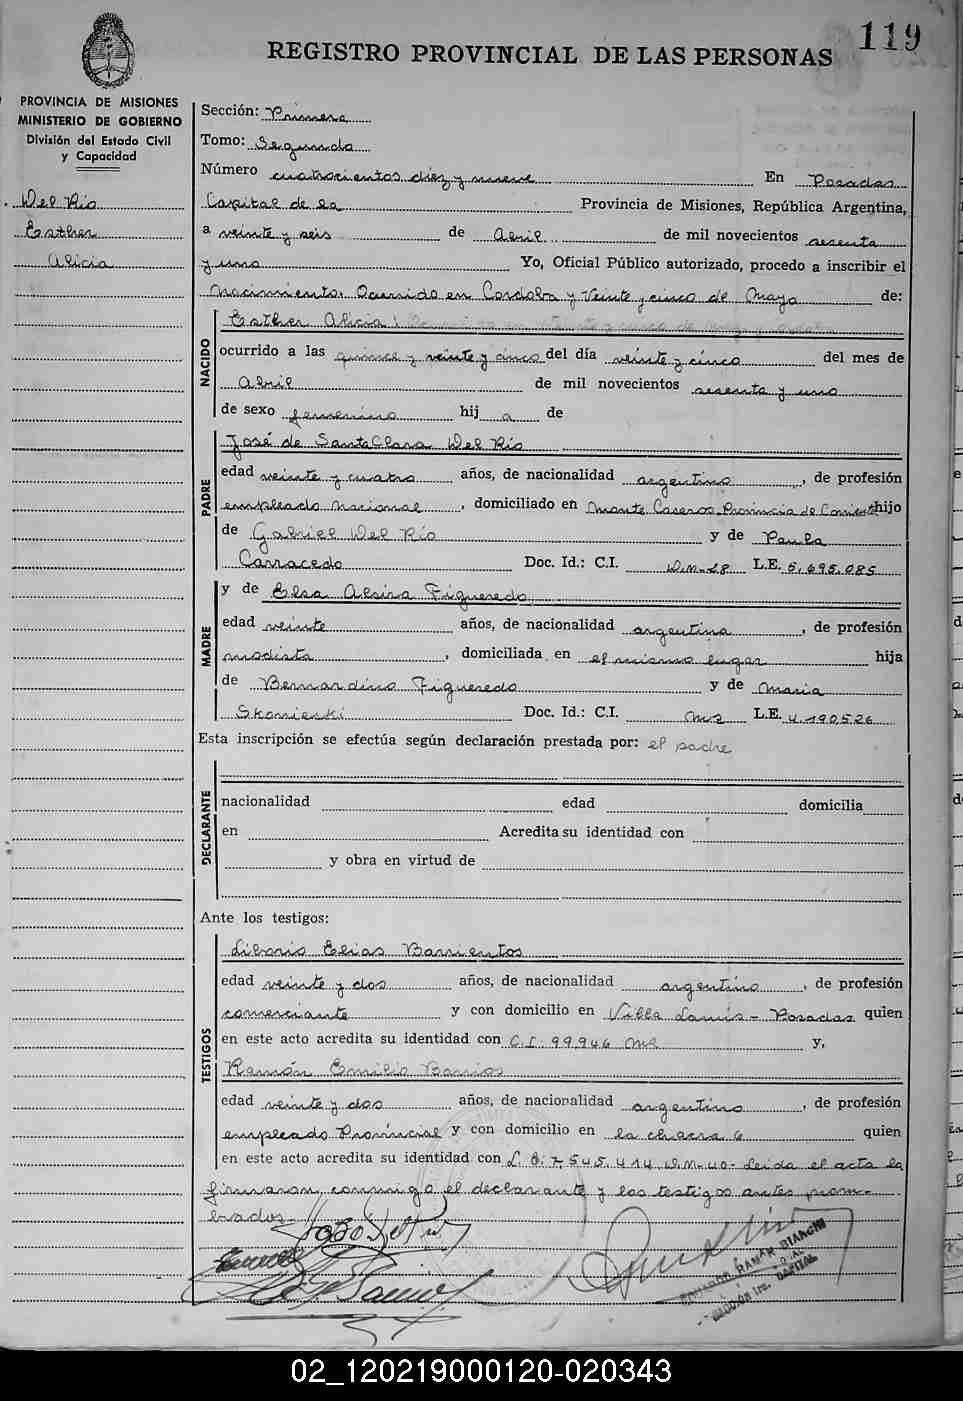 119
REGISTRO PROVINCIAL DE LAS PERSONAS
PROVINCIA DE MISIONES
MINISTERIO DE GOBIERNO
División del Estado Civil
y Capacidad
Del Rio
Esther
Alicia
Sección: Primera
Tomo: Segundo
Número cuatrocientos diez y nueve En Posadas
Capital de la Provincia de Misiones, República Argentina,
a veinte y seis de Abril de mil novecientos sesenta
y uno Yo, Oficial Público autorizado, procedo a inscribir el
Nacimiento. Ocurrido en Cordoba y Veinte y cinco de Mayo de:
NACIDO
Esther Alicia:
ocurrido a las quince y veinte y cinco del día veinte y cinco del mes de
Abril de mil novecientos sesenta y uno
de sexo femenino hij a de
PADRE
José de Santa Clara Del Rio
edad veinte y cuatro años, de nacionalidad argentino, de profesión
empleado Nacional, domiciliado en Monte Caseros Provincia de Corrientes hijo
de Gabriel Del Rio y de Paula
Carracedo Doc. Id.: C.I. D.M. 28 L.E. 5.695.085
MADRE
y de Elsa Alsira Figueredo
edad veinte años, de nacionalidad argentina, de profesión
modista, domiciliada en el mismo lugar hija
de Bernardino Figueredo y de Maria
Skonieski Doc. Id.: C.I. Mns L.E. 4.190526
Esta inscripción se efectúa según declaración prestada por: el padre
DECLARANTE
nacionalidad edad domicilia
en Acredita su identidad con
y obra en virtud de
Ante los testigos:
TESTIGOS
Liborio Elias Barrientos
edad veinte y dos años, de nacionalidad argentino, de profesión
comerciante y con domicilio en Villa Lanús - Posadas quien
en este acto acredita su identidad con C.I. 99,946 Mns y,
Ramón Emilio Barrios
edad veinte y dos años, de nacionalidad argentino, de profesión
empleado Provincial y con domicilio en la chacra 6 quien
en este acto acredita su identidad con L.E. 7,545,414 D.M. 40- Leida el acta la
firmaron conmigo el declarante y los testigos antes nom-
brados.
RAMÓN BIANCHI
CAPITAL
02_120219000120-020343